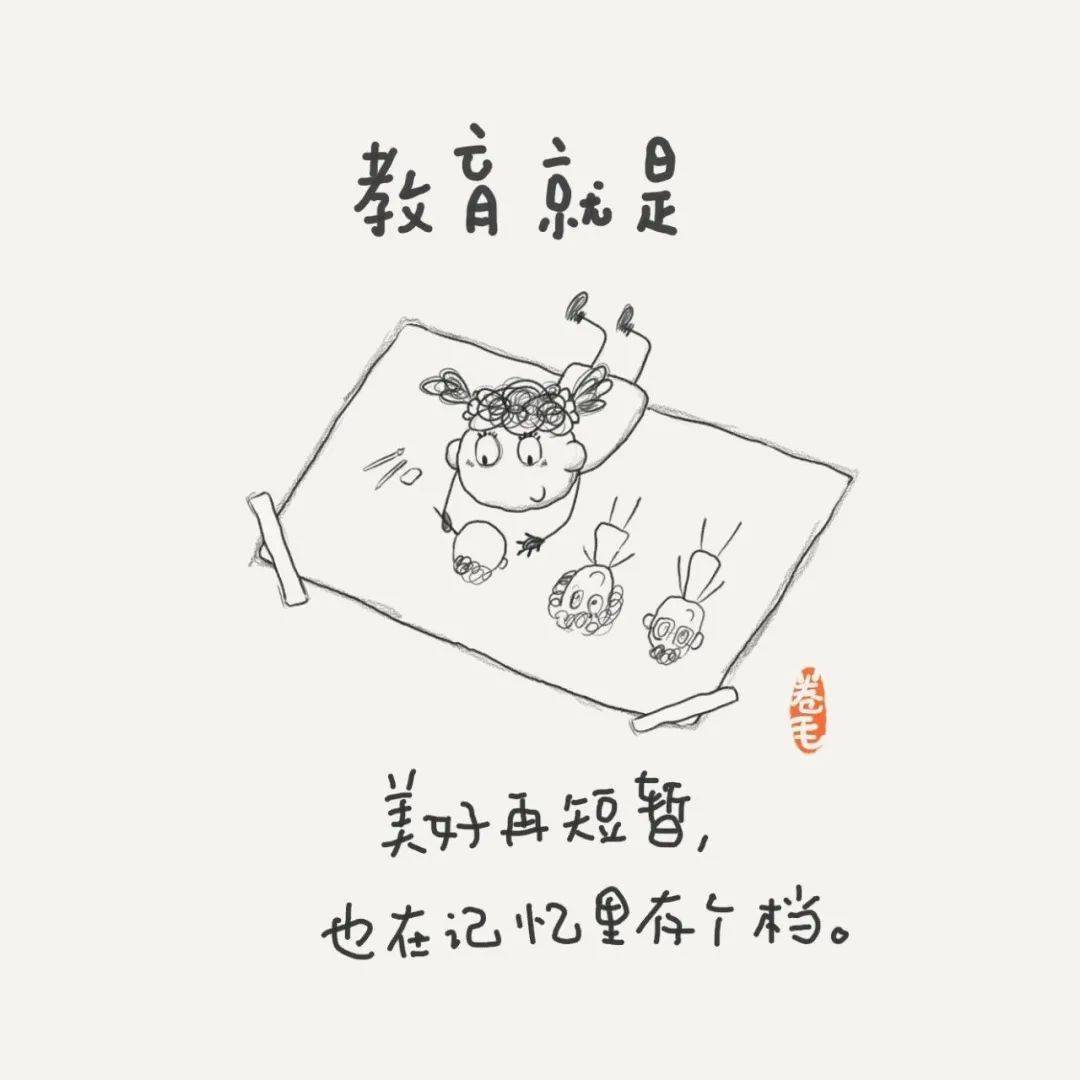 教育就是
卷毛
美好再短暂，
也在记忆里存个档。